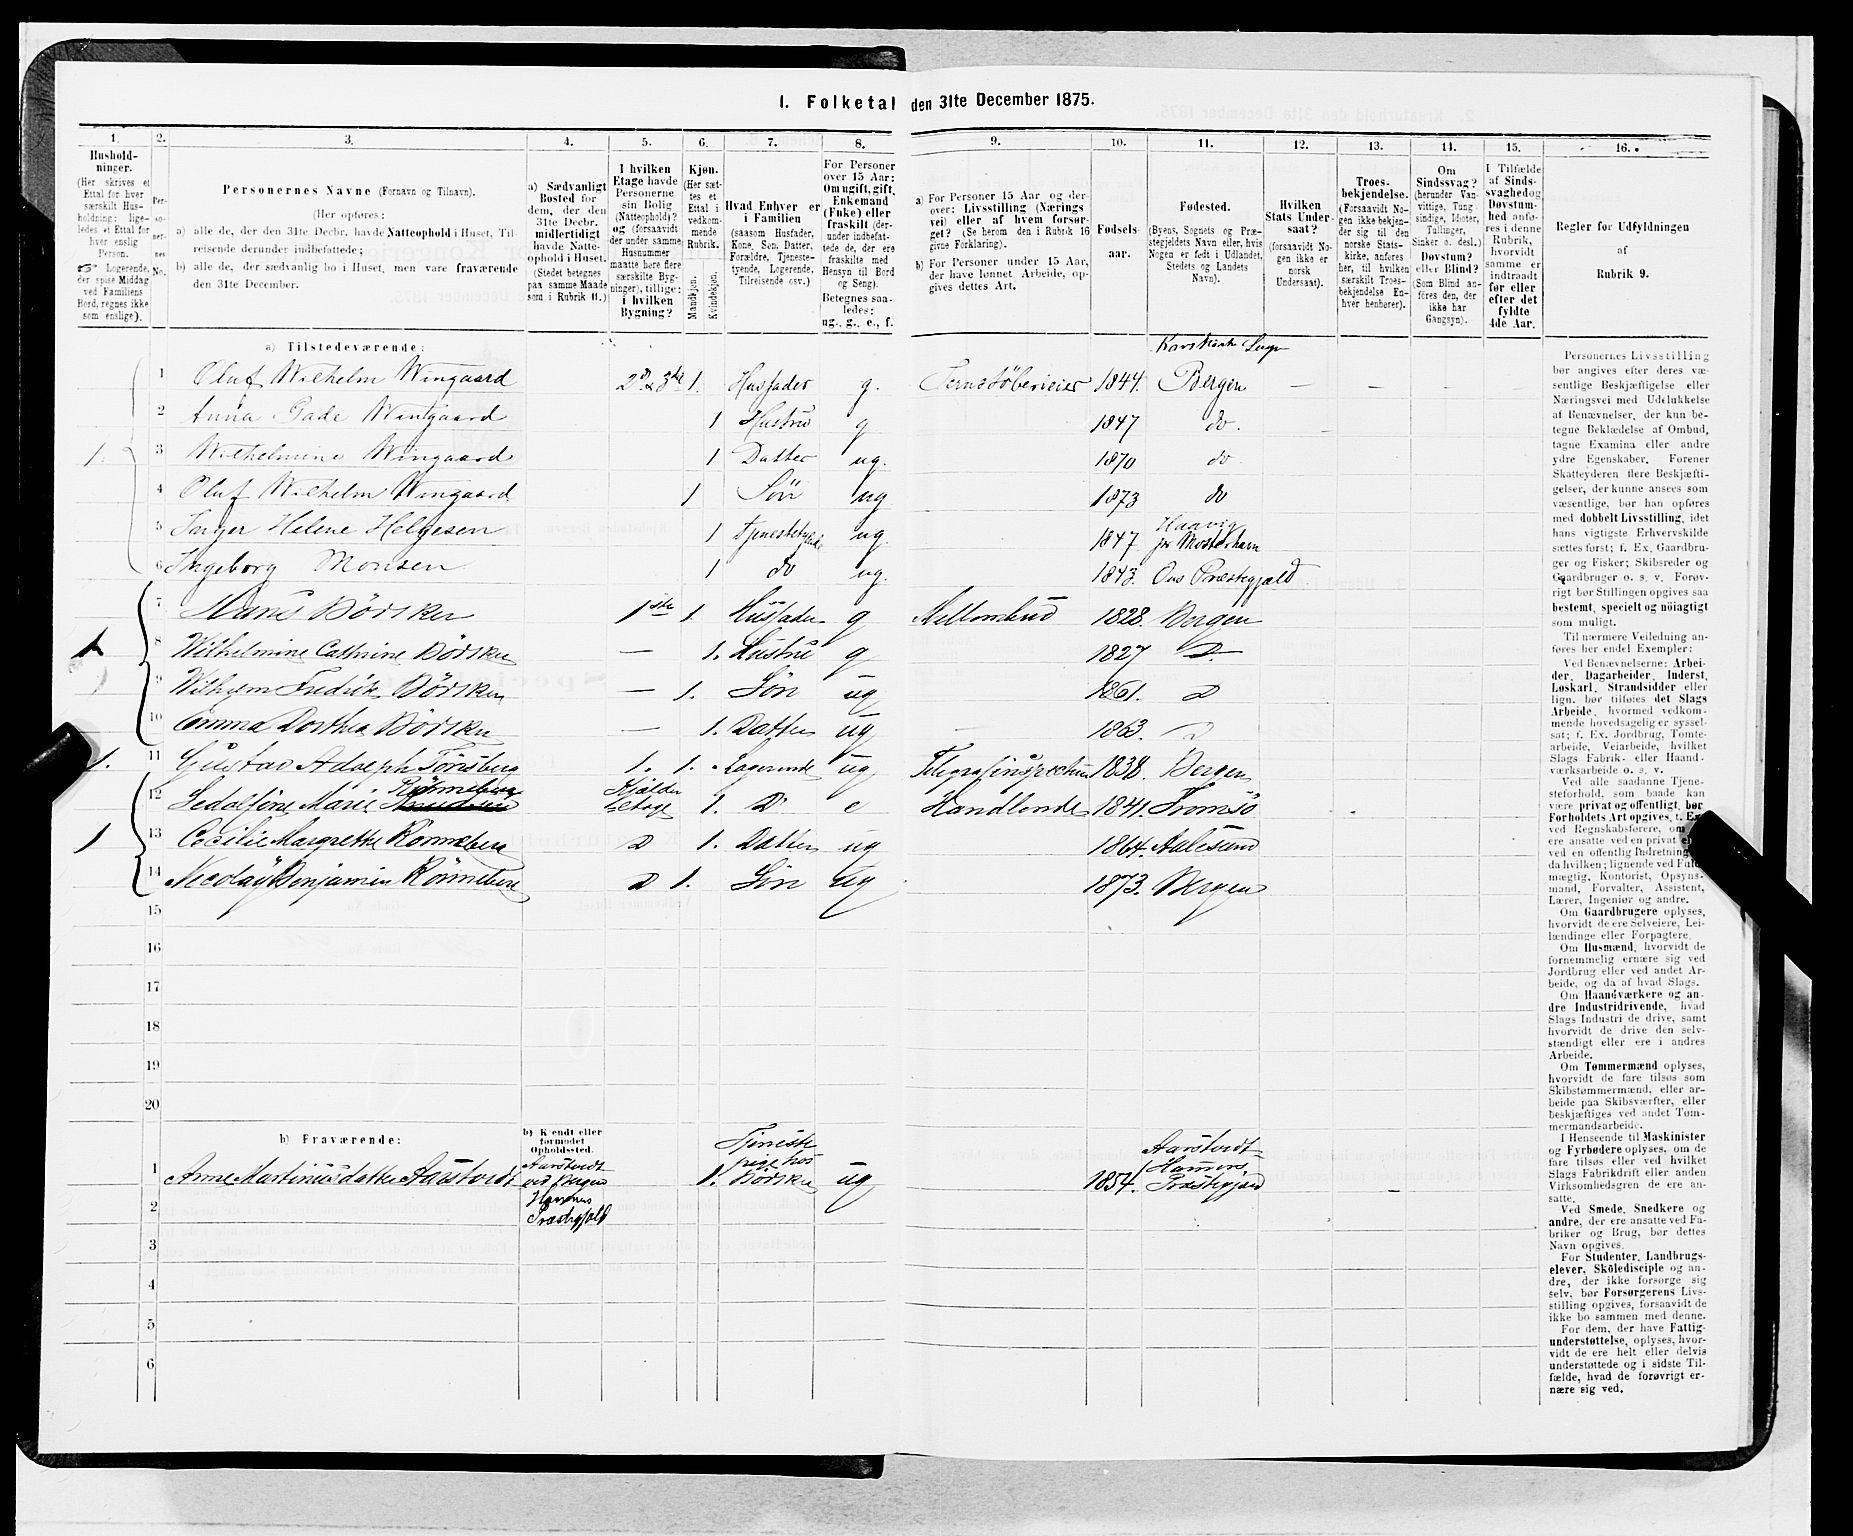 I. Folketal den 31te December 1875.
1. 2. 3. 4. 5. 6. 7. 8. 9. 10. 11. 12. 13. 14. 15. 16.
Hushold-
ninger.
(Her skrives et
Ettal for hver
særskilt Hus-
holdning; lige-
ledes et Ettal for
hver enslig
Person.
☞ Logerende,
der spise Middag
ved Familiens
Bord, regnes ikke
som enslige).
Per-
so-
ner-
nes
No.
Personernes Navne (Fornavn og Tilnavn).
(Her opføres:
a) alle de, der den 31te Decbr. havde Natteophold i Huset, Til-
reisende derunder indbefattede;
b) alle de, der sædvanlig bo i Huset, men vare fraværende
den 31te December.
a) Sædvanligt
Bosted for
dem, der den
31te Decbr.
midlertidigt
havde Natte-
ophold i Huset.
(Stedet betegnes
paa samme Maade
som i Rubrik 11.)
I hvilken
Etage havde
Personerne
sin Bolig
(Natteophold)?
og (forsaavidt
der under samme
Husnummer
maatte høre flere
særskilte Byg-
ninger), tillige:
i hvilken
Bygning?
Kjøn.
(Her sæt-
tes et
Ettal i
vedkom-
mende
Rubrik.
Mandkjøn.
Kvindekjøn.
Hvad Enhver er
i Familien
(saasom Husfader,
Kone, Søn, Datter,
Forældre, Tjeneste-
tyende, Logerende,
Tilreisende osv.)
For Personer
over 15 Aar:
Om ugift, gift,
Enkemand
(Enke) eller
fraskilt (der-
under indbefat-
tede de, der ere
fraskilte med
Hensyn til Bord
og Seng).
Betegnes saa-
ledes:
ug., g., e., f.
a) For Personer 15 Aar og der-
over: Livsstilling (Nærings
vei) eller af hvem forsør-
get? (Se herom den i Rubrik 16
givne Forklaring).
b) For Personer under 15 Aar,
der have lønnet Arbeide, op-
gives dettes Art.
Fødsels-
aar.
Fødested.
(Byens, Sognets og Præ-
stegjeldets Navn eller, hvis
Nogen er født i Udlandet,
Stedets og Landets
Navn).
Hvilken
Stats Under-
saat?
(forsaavidt No-
gen ikke er
norsk
Undersaat).
Troes-
bekjendelse.
(Forsaavidt No-
gen ikke bekjen-
der sig til den
norske Stats-
kirke, anføres
her, til hvilken
særskilt Troes-
bekjendelse En-
hver henhører).
Om
Sindssvag?
(herunder Van-
vittige, Tung-
sindige, Idioter,
Tullinger,
Sinker o. desl.)
Døvstum?
eller Blind?
(Som Blind an-
føres den, der
ikke har
Gangsyn).
I Tilfælde
af Sinds-
svaghed og
Døvstum-
hed anfø-
res i denne
Rubrik,
hvorvidt
samme er
indtraadt
før eller
efter det
fyldte
4de Aar.
Regler for Udfyldningen
af
Rubrik 9.
a) Tilstedeværende:
Korskirk Sogn
1 Oluf Wilhelm Wingaard 2d & 3die 1. Husfader g. Fernisøbereier 1844. Bergen
2 Anna Gade Wingaard 1 Hustru g 1847 do.
1. 3 Wilhelmine Wingaard 1 Datter ug. 1870 do
4 Oluf Wilhelm Wingaard 1 Sön ug 1873 do
5 Inger Helene Helgesen 1 Tjenestetyende ug. 1847 Haavig pr Mosterhavn
6 Ingeborg Monsen 1 do ug. 1843. Ous Præstegjæld
7 Hans Börsken 1ste 1. Husfader g Mellombud 1828. Bergen
1 8 Wilhelmine Cathrine Börsken — 1. Hustru g 1827 D.
9 Wilhelm Fredrik Börsken — 1. Sön ug 1861. D
10 Emma Dorthea Börsken — 1. Datter ug 1863. D
1. 11 Gustav Adolph Tönsberg 1. 1. Logerende ug Telegrafinspecteur 1838. Bergen
Rönneberg
12 Marie Kjelder Etage 1. D e Handlende 1841. Tromsö
1 13 Cecilie Margrethe Rönneberg D 1. Datter ug 1864. Aalesund
14 Nicolay Benjamin Rönneberg D 1. Sön ug 1873. Bergen
15
16
17
18
19
20
b) Fraværende:
b) Kjendt eller
formodet
Opholdssted.
1 Anne Martinusdatter Aarstvedt Aarstvedt ved Bergen Hammers Præstegjæld 1. Tjenestepige hos Börsken ug 1854. Aarstvedt Hammers Præstegjæld
2
3
4
5
6
Personernes Livsstilling
bør angives efter deres væ-
sentlige Beskjæftigelse eller
Næringsvei med Udelukkelse
af Benævnelser, der kun be-
tegne Beklædelse af Ombud,
tagne Examina eller andre
ydre Egenskaber. Forener
Skatteyderen flere Beskjæfti-
gelser, der kunne ansees som
væsentlige, bør han opføres
med dobbelt Livsstilling, idet
hans vigtigste Erhvervskilde
sættes først; f. Ex. Gaardbru-
ger og Fisker; Skibsreder og
Gaardbruger o. s. v. Forøv-
rigt bør Stillingen opgives saa
bestemt, specielt og nöiagtigt
som muligt.
Til nærmere Veiledning an-
føres her endel Exempler:
Ved Benævnelserne: Arbei-
der, Dagarbeider, Inderst,
Løskarl, Strandsidder eller
lign. bør tilføies det Slags
Arbeide, hvormed vedkom-
mende hovedsagelig er syssel-
sat; f. Ex. Jordbrug, Tomte-
arbeide, Veiarbeide, hvilket
Slags Fabrik- eller Haand-
værksarbeide o. s. v.
Ved alle saadanne Tjene-
steforhold, som baade kan
være privat og offentligt, bør
Forholdets Art opgives, f. Ex.
ved Regnskabsførere, om de
ere ansatte ved en privat eller
ved en offentlig Indretning og
da hvilken; lignende ved Fuld-
mægtig, Kontorist, Opsyns-
mand, Forvalter, Assistent,
Lærer, Ingeniør og andre.
Om Gaardbrugere oplyses,
hvorvidt de ere Selveiere, Lei-
lændinge eller Forpagtere.
Om Husmænd, hvorvidt de
fornemmelig ernære sig ved
Jordbrug eller ved andet Ar-
beide, og da af hvad Slags.
Om Haandværkere og an-
dre Industridrivende, hvad
Slags Industri de drive, samt
hvorvidt de drive den selv-
stændigt eller ere i andres
Arbeide.
Om Tømmermænd oplyses,
hvorvidt de fare tilsøs som
Skibstømmermænd, eller ar-
beide paa Skibsværfter, eller
beskjæftiges ved andet Tøm-
mermandsarbeide.
I Henseende til Maskinister
og Fyrbødere oplyses, om de
fare tilsøs eller ved hvilket
Slags Fabrikdrift eller anden
Virksomhedsgren de ere an-
satte.
Ved Smede, Snedkere og
andre, der ere ansatte ved Fa-
briker og Brug, bør dettes
Navn opgives.
For Studenter, Landbrugs-
elever, Skoledisciple og an-
dre, der ikke forsørge sig
selv, bør Forsørgerens Livs-
stilling opgives, forsaavidt de
ikke bo sammen med denne.
For dem, der have Fattig-
understøttelse, oplyses, hvor-
vidt de ere helt eller delvis
understøttede og i sidste Til-
fælde, hvad de forøvrigt er-
nære sig ved.